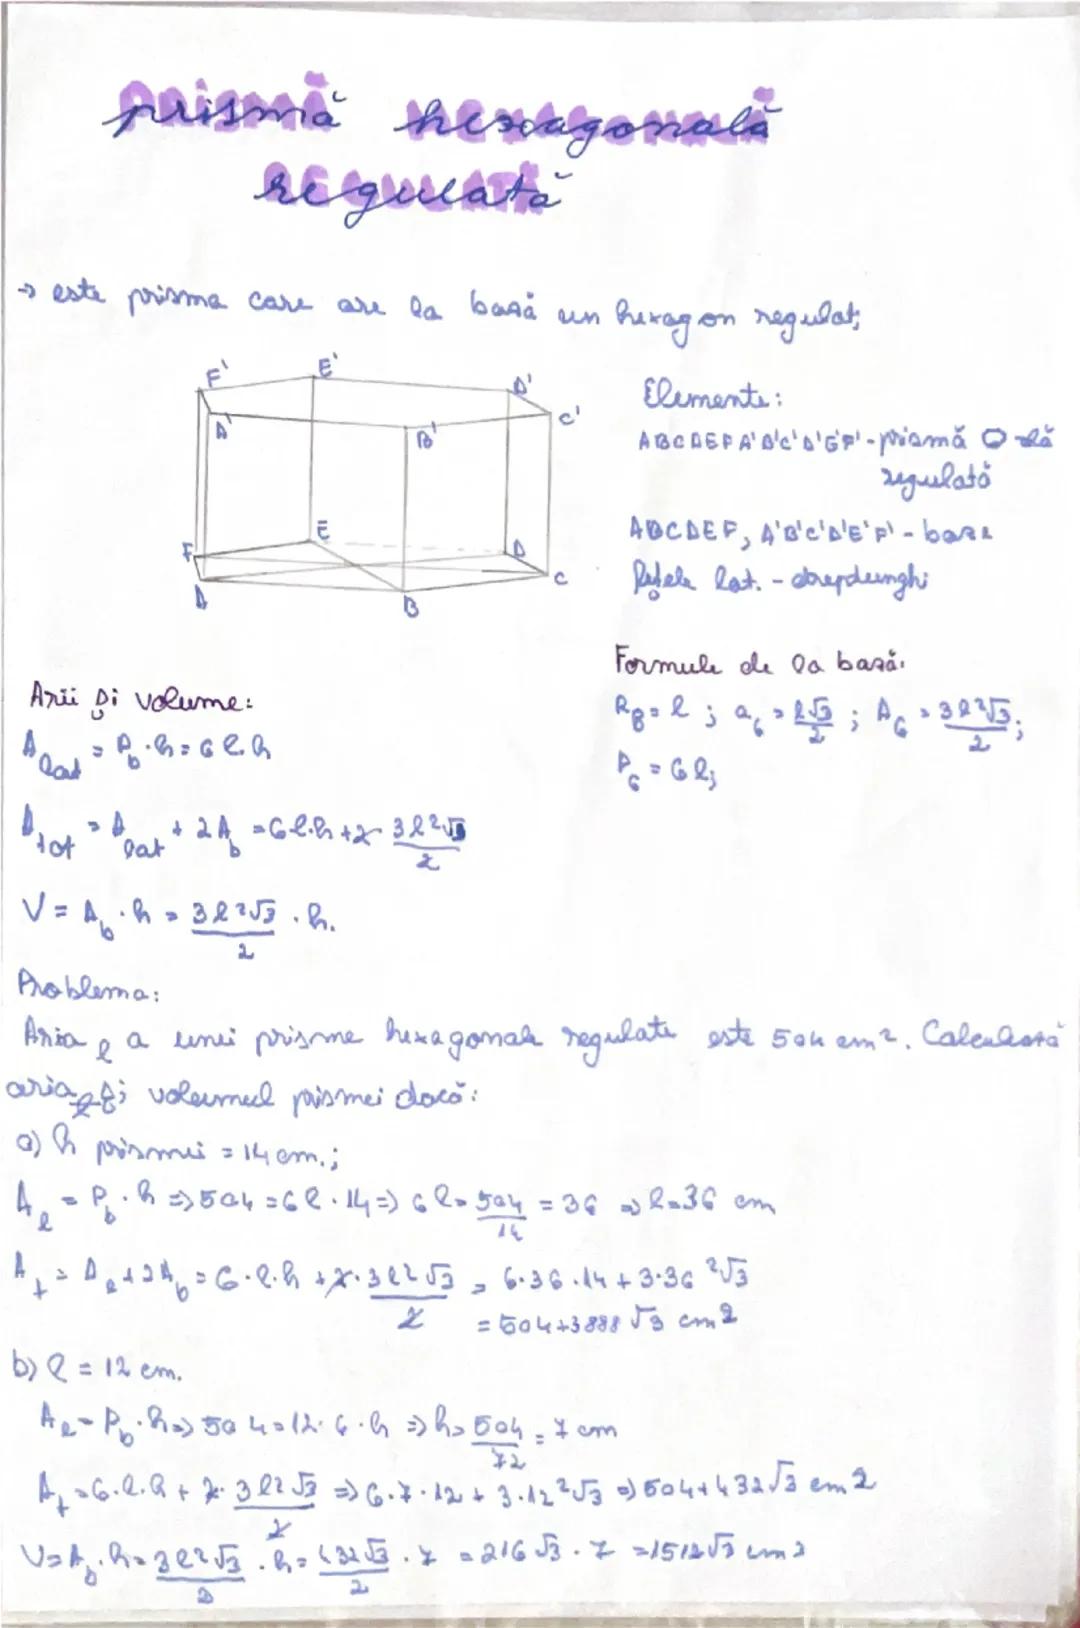 prismă hexagonală
regulată
→ este prisma care are la bază un hexagon regulat;
F' E' D' C'
A' B'
F E D C
A B
Elemente:
ABCDEFA'B'C'D'E'F' - prismă ⬡ lă
regulată
ABCDEF, A'B'C'D'E'F' - baze
Fețele lat. - dreptunghi
Formule de la bază:
R₆ = l ; a₆ = l√3/2 ; A₆ = 3l²√3/2 ;
P₆ = 6l;
Arii și volume:
A lat = P_b · h = 6l·h
A tot = A lat + 2A_b = 6l·h + 2· 3l²√3/2
V = A_b · h = 3l²√3/2 · h.
Problema:
Aria l a unei prisme hexagonale regulate este 504 cm². Calculează
aria și volumul prismei dacă:
a) h prismei = 14 cm.;
A_l = P_b · h ⇒ 504 = 6l · 14 ⇒ 6l = 504/14 = 36 ⇒ l = 36 cm
A_t = A_l + 2A_b = 6·l·h + 2· 3l²√3/2 = 6·36·14 + 3·36²√3
= 504 + 3888√3 cm²
b) l = 12 cm.
A_l = P_b · h ⇒ 504 = 12·6·h ⇒ h = 504/72 = 7 cm
A_t = 6·l·h + 2· 3l²√3/2 ⇒ 6·7·12 + 3·12²√3 ⇒ 504 + 432√3 cm²
V = A_b · h = 3l²√3/2 · h = 432√3/2 · 7 = 216√3 · 7 = 1512√3 cm³